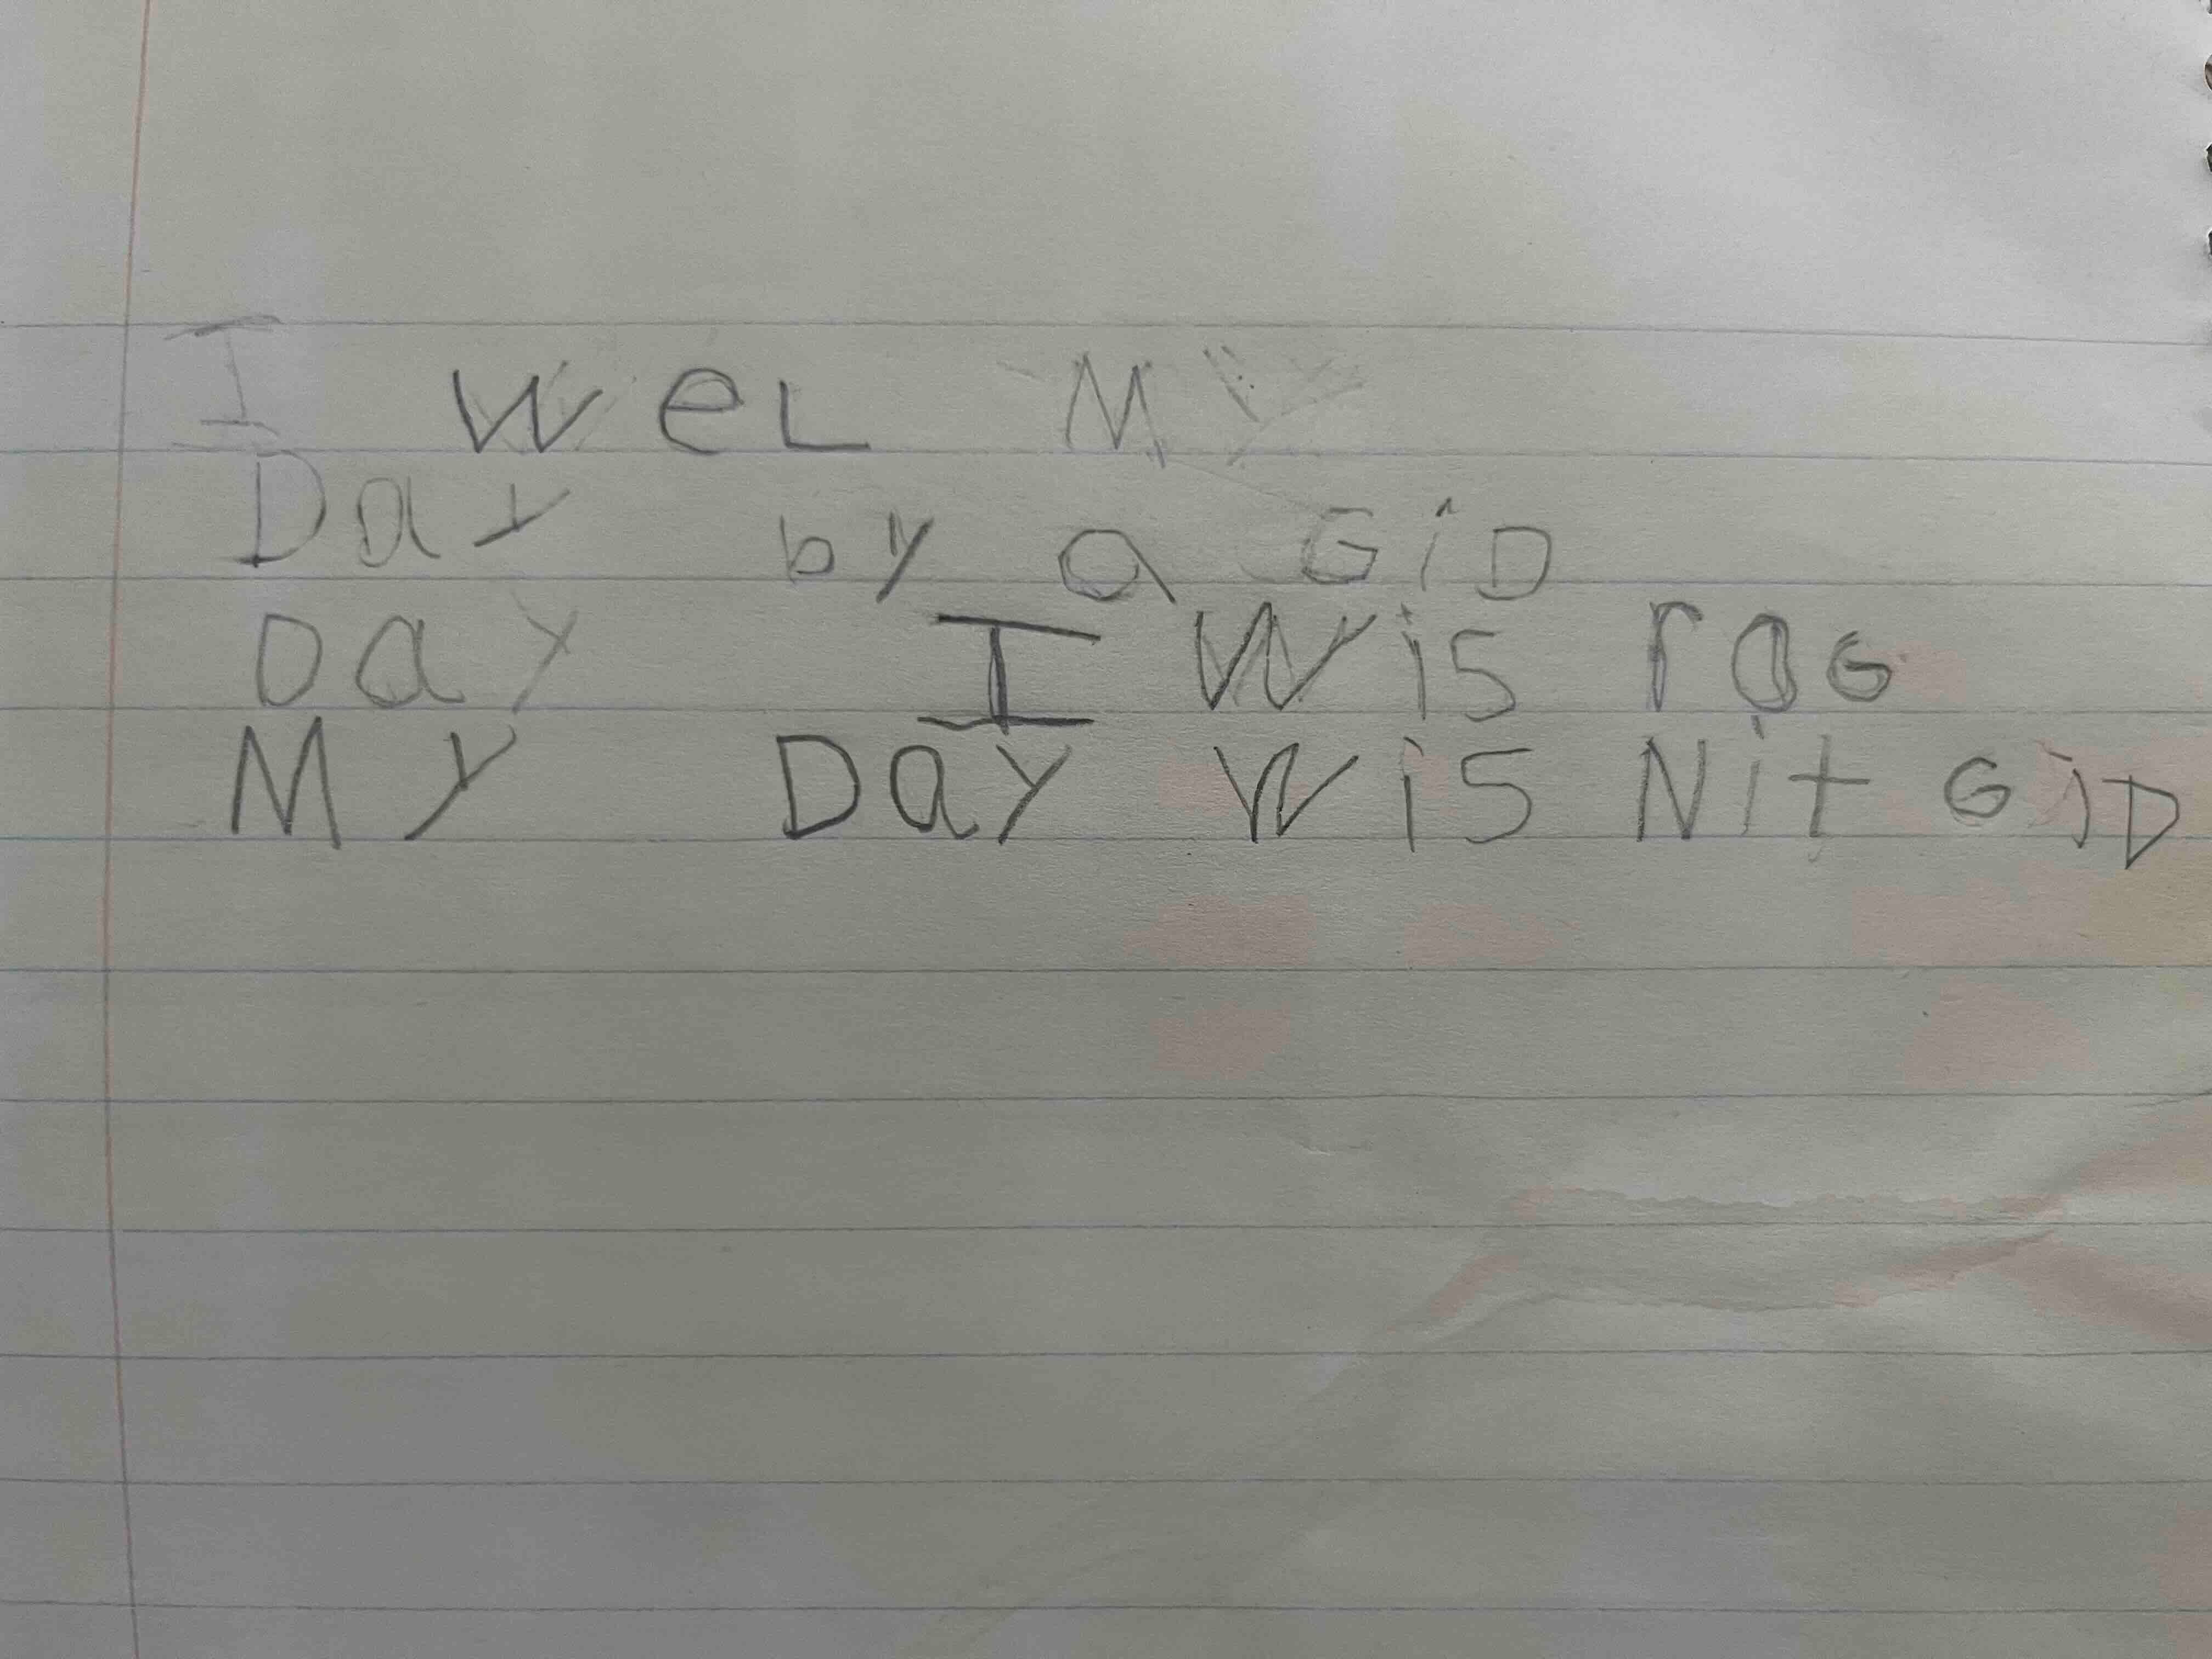 I wel My
Day by a GiD
Day I Wis rag
My Day wis Nit GiD